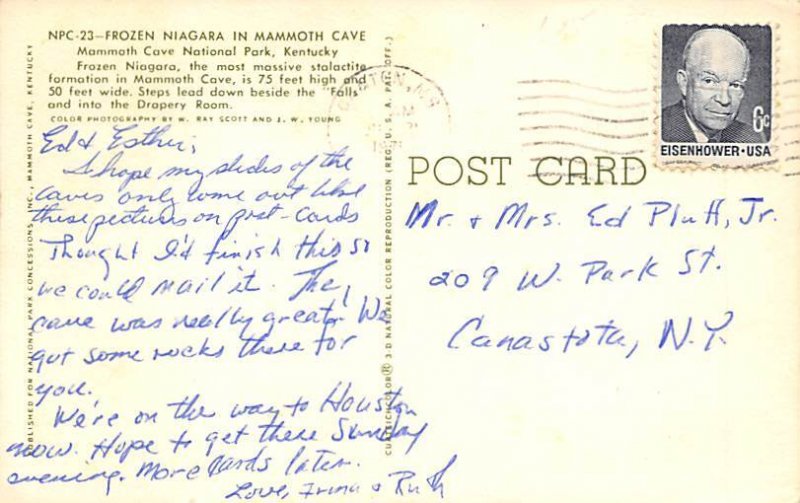 NPC-23—FROZEN NIAGARA IN MAMMOTH CAVE
Mammoth Cave National Park, Kentucky
Frozen Niagara, the most massive stalactite
formation in Mammoth Cave, is 75 feet high and
50 feet wide. Steps lead down beside the "Falls"
and into the Drapery Room.
COLOR PHOTOGRAPHY BY W. RAY SCOTT AND J. W. YOUNG
Ed & Esther,
I hope my slides of the
caves only come out like
these pictures on post-cards
Thought I'd finish this so
we could mail it. The
cave was really great! We
got some rocks there for
you.
We're on the way to Houston
now. Hope to get there Sunday
evening. More cards later.
Love, Irma & Ruth
PUBLISHED FOR NATIONAL PARK CONCESSIONS, INC., MAMMOTH CAVE, KENTUCKY
CURTEICHCOLOR® 3-D NATURAL COLOR REPRODUCTION (REG. U.S.A. PAT. OFF.)
POST CARD
6c
EISENHOWER·USA
Mr. & Mrs. Ed Pluff, Jr.
209 W. Park St.
Canastota, N.Y.